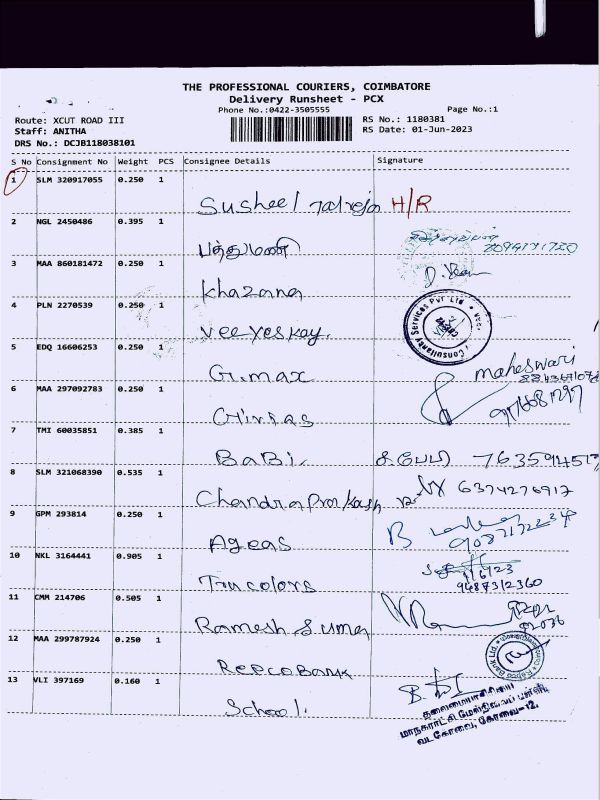 THE PROFESSIONAL COURIERS, COIMBATORE
Delivery Runsheet - PCX
Phone No.:0422-3505555
Page No.:1
Route: XCUT ROAD III
RS No.: 1180381
Staff: ANITHA
RS Date: 01-Jun-2023
DRS No.: DCJB118038101
S No Consignment No Weight PCS Consignee Details Signature
1 SLM 320917055 0.250 1
Susheel Talreja H/R
2 NGL 2450486 0.395 1
பத்துமணி
3 MAA 860181472 0.250 1
Khazana
4 PLN 2270539 0.250 1
Veeyeskay.
Consultancy Services Pvt Ltd
5 EDQ 16606253 0.250 1
G.max maheswari
6 MAA 297092783 0.250 1
7 TMI 60035851 0.385 1
BaBi.
8 SLM 321068390 0.535 1
Chandra Prorkash 6374276917
9 GPM 293814 0.250 1
Ageas
10 NKL 3164441 0.905 1
1/6/23
Tru colors 9487312360
11 CMM 214706 0.505 1
Ramesh
12 MAA 299787924 0.250 1
RepcoBank
Repco Bank Ltd.
13 VLI 397169 0.160 1
School.
தலைமையாசிரியை
மாநகராட்சி மேல்நிலைப் பள்ளி,
வடகோவை, கோவை-12.